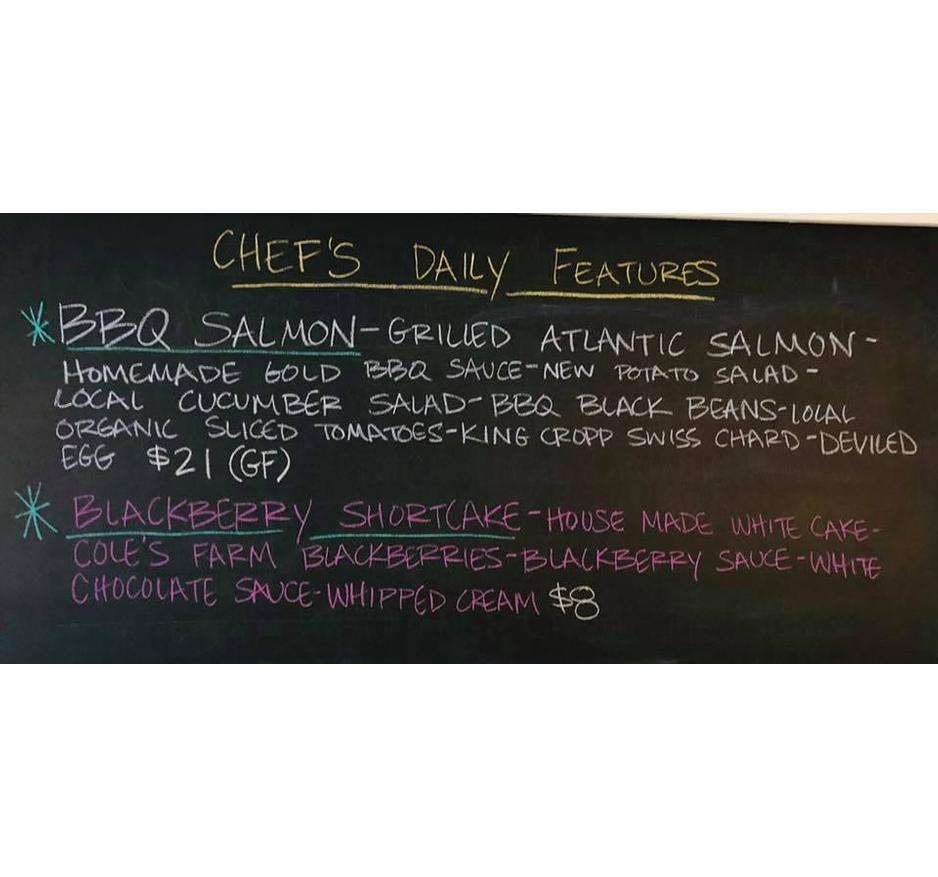 CHEF'S DAILY FEATURES
* BBQ SALMON - GRILLED ATLANTIC SALMON -
HOMEMADE GOLD BBQ SAUCE - NEW POTATO SALAD -
LOCAL CUCUMBER SALAD - BBQ BLACK BEANS - LOCAL
ORGANIC SLICED TOMATOES - KING CROPP SWISS CHARD - DEVILED
EGG $21 (GF)
* BLACKBERRY SHORTCAKE - HOUSE MADE WHITE CAKE -
COLE'S FARM BLACKBERRIES - BLACKBERRY SAUCE - WHITE
CHOCOLATE SAUCE - WHIPPED CREAM $8